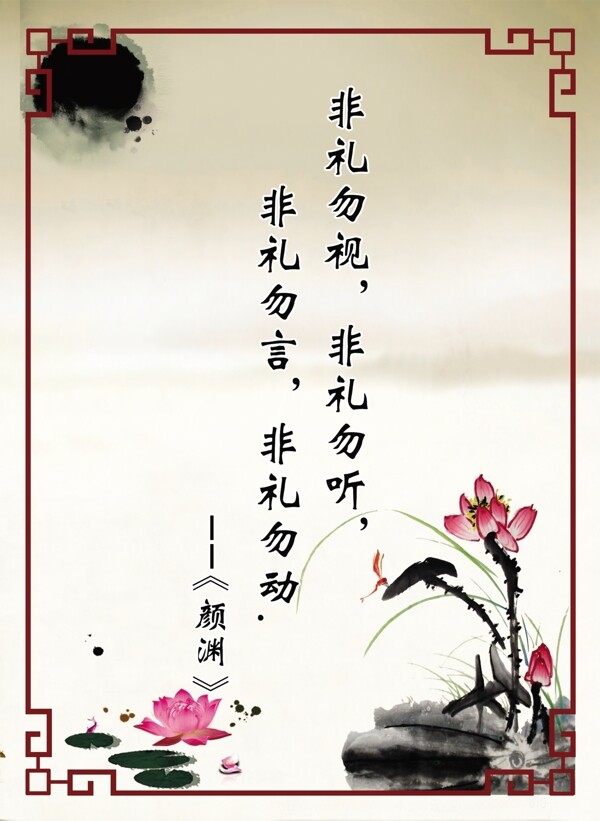 非礼勿视，非礼勿听，
非礼勿言，非礼勿动．
——《颜渊》